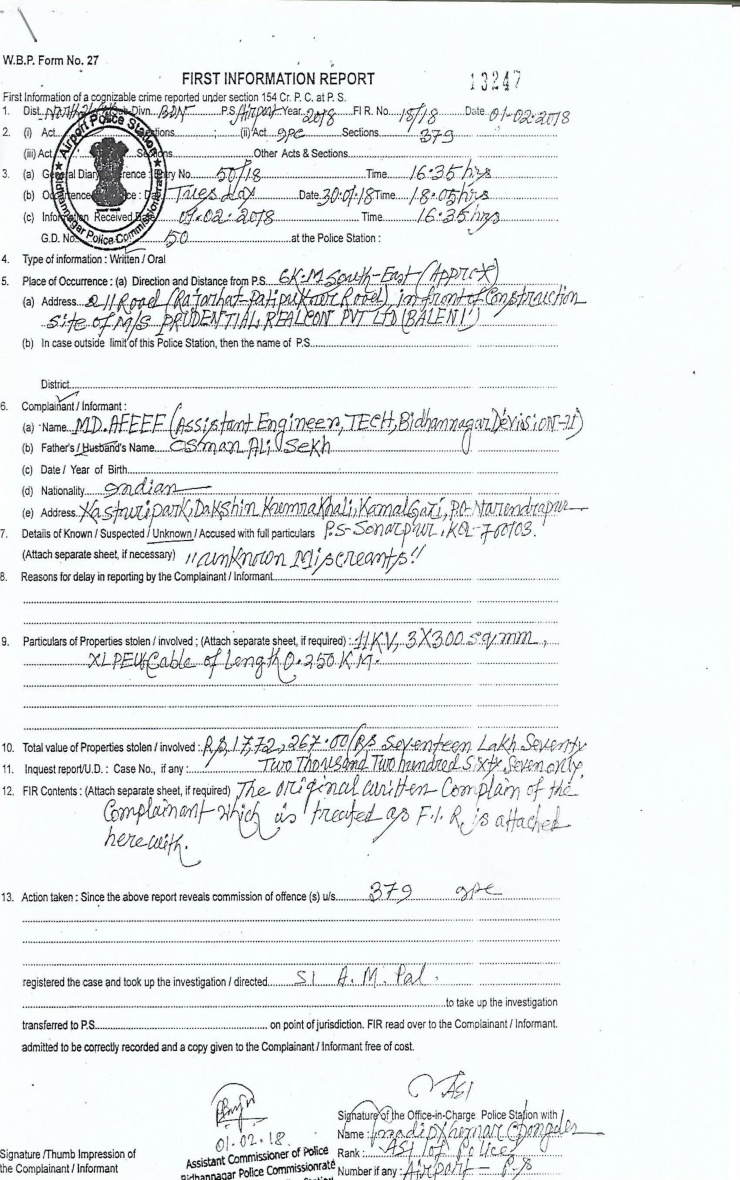 W.B.P. Form No. 27
FIRST INFORMATION REPORT 13247
First Information of a cognizable crime reported under section 154 Cr. P. C. at P. S.
1. Dist. Divn. BDN P.S Airport Year 2018 FI R. No. 18/18 Date 01-02-2018
2. (i) Act Sections ; (ii) Act IPC Sections 379
(iii) Act Sections Other Acts & Sections
3. (a) General Diary Reference : Entry No. 50/18 Time 16:35 hrs
(b) Occurrence : Day Tuesday Date 30-01-18 Time 18-05 hrs
(c) Information Received Date 01-02-2018 Time 16:35 hrs
G.D. No. 50 at the Police Station :
4. Type of information : Written / Oral
5. Place of Occurrence : (a) Direction and Distance from P.S 6K.M South-East (Approx)
(a) Address 211 Road (Rajarhat- Road), in front of Construction
site of M/S PRUDENTIAL REALCON PVT LTD
(b) In case outside limit of this Police Station, then the name of P.S.
District
6. Complainant / Informant :
(a) Name MD. AFEEF (Assistant Engineer, TECH, Bidhannagar
(b) Father's / Husband's Name Osman Ali Sekh
(c) Date / Year of Birth
(d) Nationality Indian
(e) Address Kasturipark, Dakshin Kumrakhali, Kamalgazi, P.O- Narendrapur
7. Details of Known / Suspected / Unknown / Accused with full particulars P.S- Sonarpur, Kol-700103.
(Attach separate sheet, if necessary) "unknown Miscreants"
8. Reasons for delay in reporting by the Complainant / Informant
9. Particulars of Properties stolen / involved ; (Attach separate sheet, if required) : 11KV, 3X300 sq.mm,
Cable of Length 0.250 K.M.
10. Total value of Properties stolen / involved : RS, 17,72,267.00/ Rs Seventeen Lakh Seventy
11. Inquest report/U.D. : Case No., if any : Two Thousand Two hundred Sixty Seven only,
12. FIR Contents : (Attach separate sheet, if required) The original written Complain of the
Complainant which is treated as F.I.R, is attached
herewith.
13. Action taken : Since the above report reveals commission of offence (s) u/s 379 IPC
registered the case and took up the investigation / directed SI A. M. Pal.
to take up the investigation
transferred to P.S. on point of jurisdiction. FIR read over to the Complainant / Informant.
admitted to be correctly recorded and a copy given to the Complainant / Informant free of cost.
ASI
01.02.18
Signature of the Office-in-Charge Police Station with
Name : Kumar
Assistant Commissioner of Police
Rank : ASI of Police
Bidhannagar Police Commissionrate
Number if any : Airport - P.S
Signature /Thumb Impression of
the Complainant / Informant
Airport Police Station
Bidhannagar Police Commissionerate